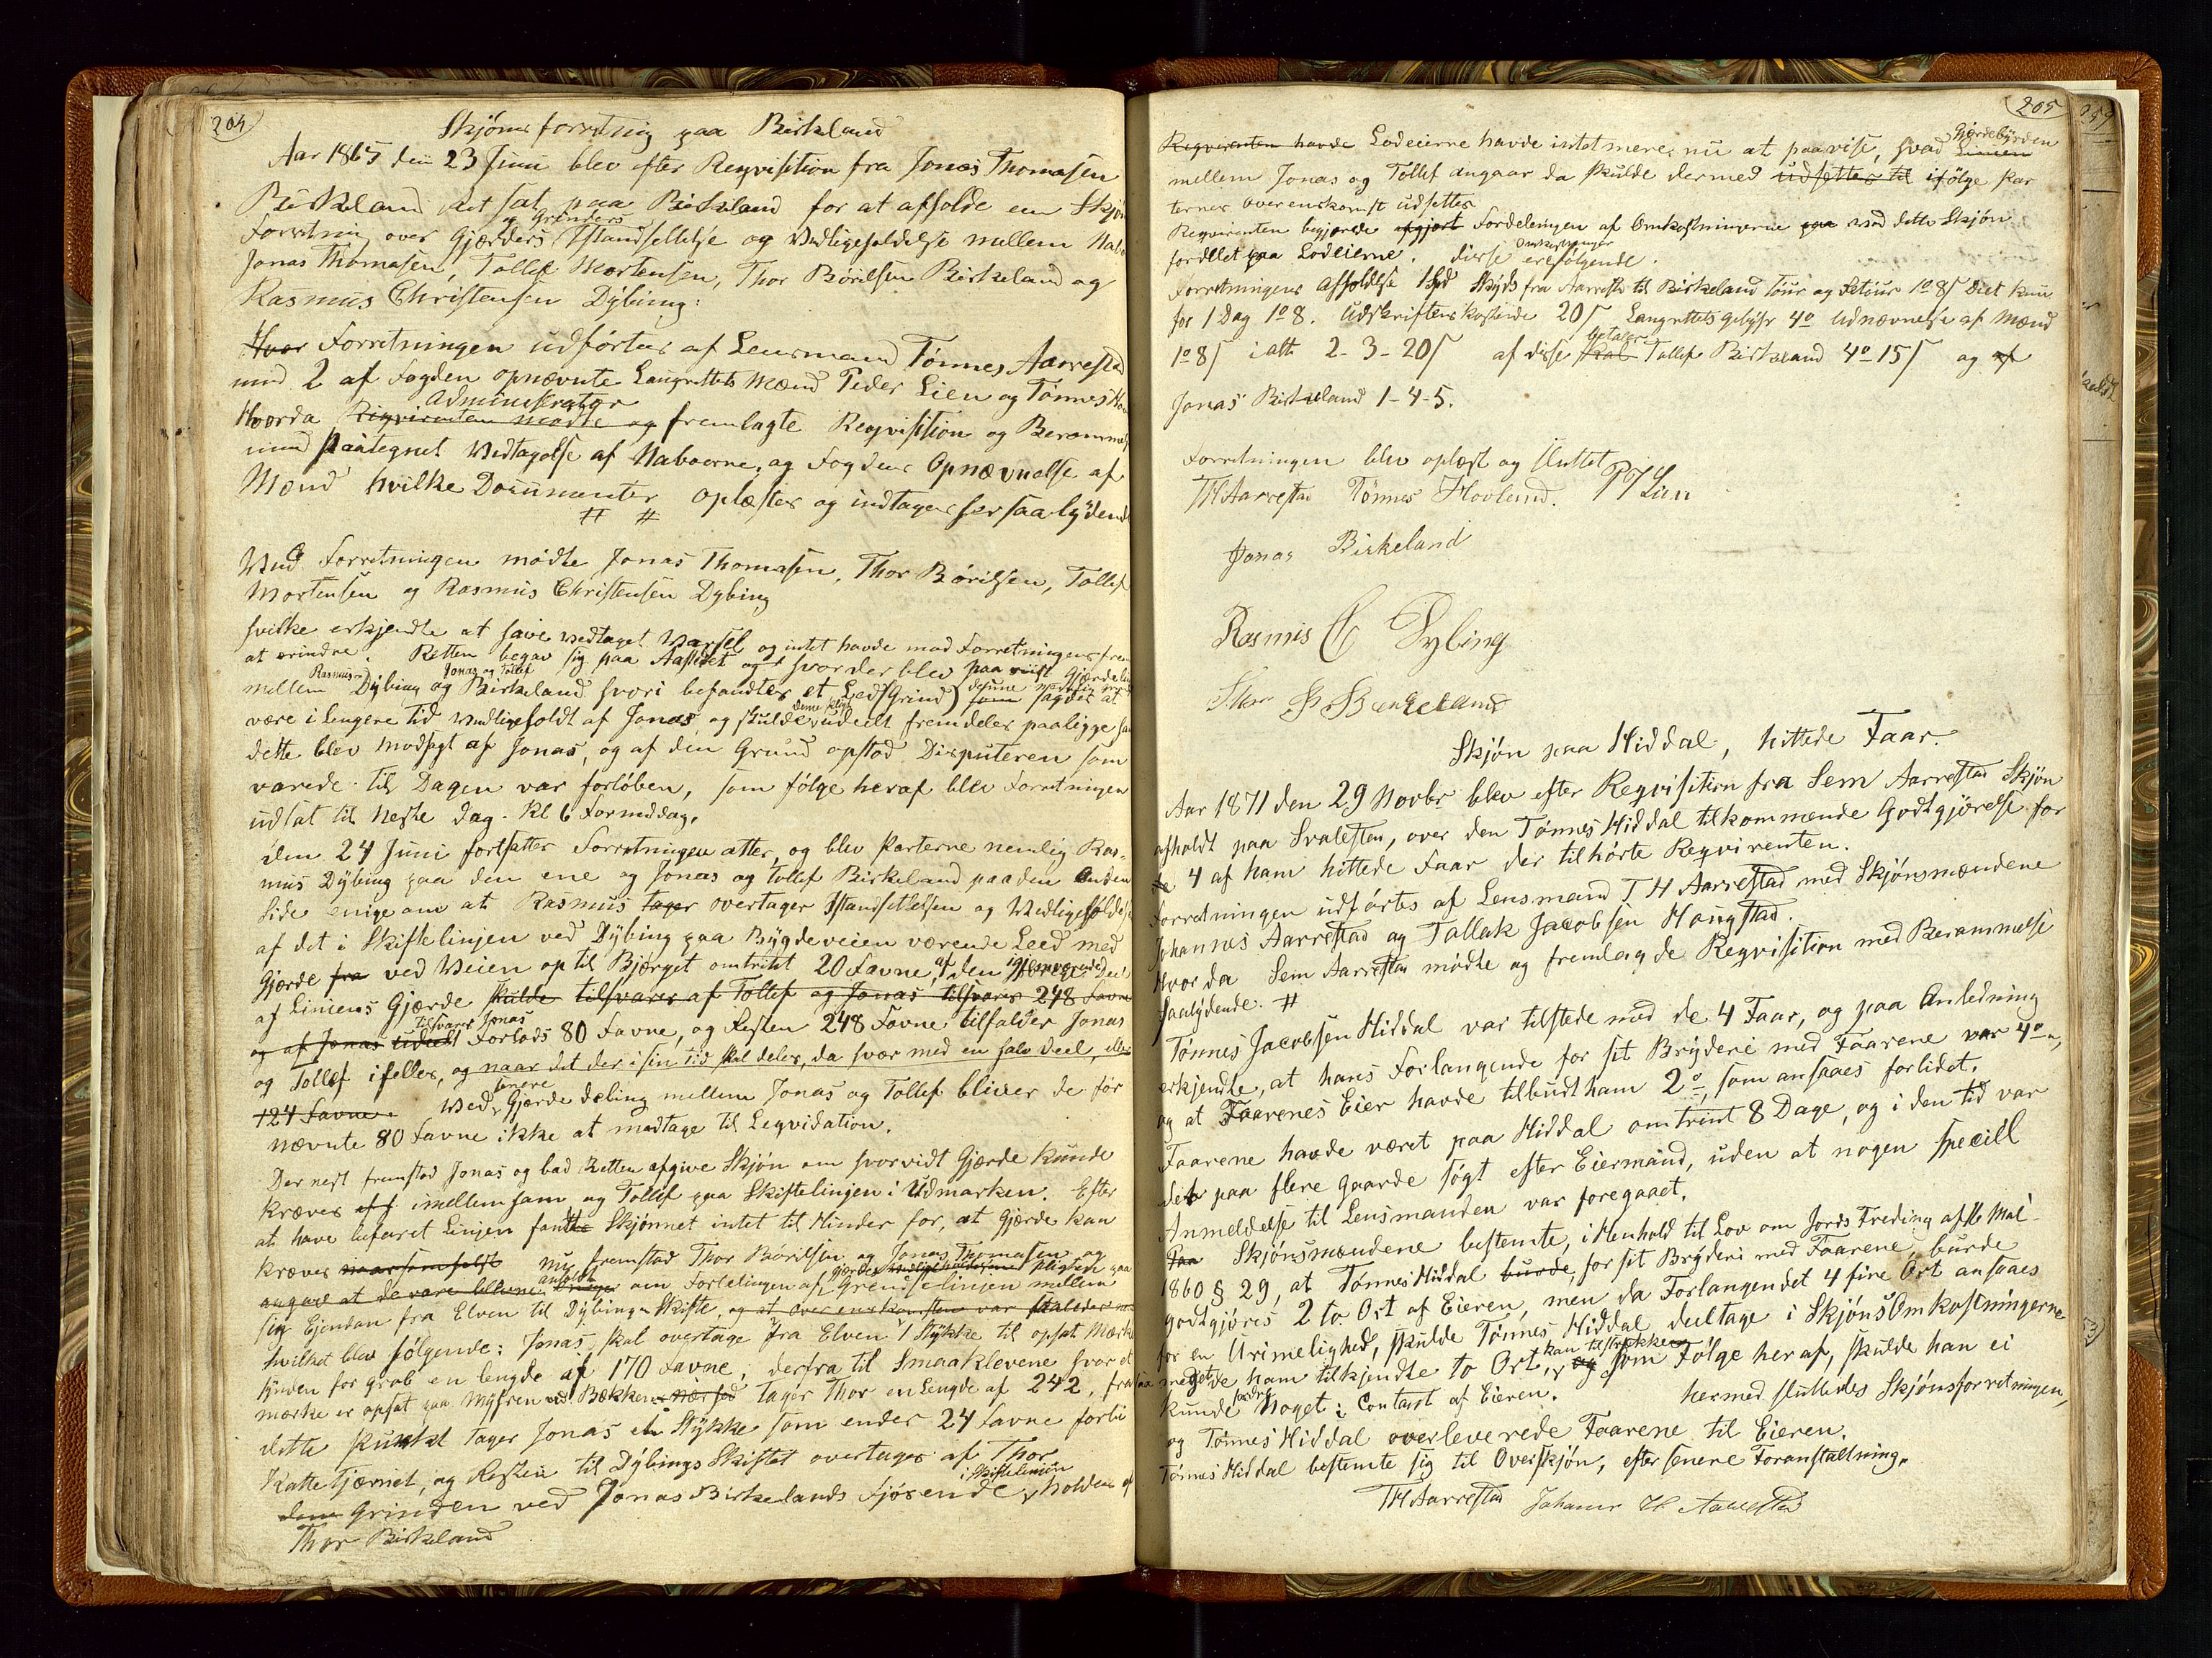 204
Skjønsforretning paa Birkeland
Aar 1865 den 23 Juni blev efter Reqvisition fra Jonas Thomasen
Birkeland Ret sat paa Birkeland for at afholde en Skjøn
og Grinders
Forretning over Gjærders Istandsettelse og Vedligeholdelse mellem Nabo
Jonas Thomasen, Tollef Mortensen, Thor Börilsen Birkeland og
Rasmus Christensen Dÿbing:
Hvor Forretningen udførtes af Lensmand Tønnes Aarrestad
med 2 af Fogden opnævnte Laugrettets Mænd Peder Lien og Tønnes Hov
Administrator
Hvorda Reqvirenten mødte og fremlagte Reqvisition og Berammelse
med paategnet Vedtagelse af Naboerne, og Fogdens Opnævnelse af
Mænd hvilke Documenter oplæstes og indtages her saalÿdende
# #
Ved Forretningen mødte Jonas Thomasen, Thor Börilsen, Tollef
Mortensen og Rasmus Christensen Dÿbing
hvilke erkjendte at have vedtaget Varsel og intet havde mod Forretningens frem
at erindre. Retten begav sig paa Aastedet og hvor der blev paa vist Gjærdelin
Rasmus Jonas og Tollef
mellem Dÿbing og Birkeland hvori befandtes et Led (Grind) som sagdes at
være i lengere Tid vedligeholdt af Jonas, og skulde udeelt fremdeles paaligge ham
dette blev modsagt af Jonas, og af den Grund opstod Disputeren som
varede til Dagen var forløben, som følge heraf blev Forretningen
udsat til Neste Dag. Kl 6 Formiddag.
den 24 Juni fortsattes Forretningen atter, og blev Parterne nemlig Ras-
mus Dÿbing paa den ene og Jonas og Tollef Birkeland paa den anden
Side enige om at Rasmus tager overtager Istandsettelsen og Vedligeholdelse
af det i Skiftelinjen ved Dÿbing paa Bÿgdeveien værende Leed med
Gjerde fra ved Veien op til Bjerget omtrint 20 Favne, af den igjenværende Deel
af Liniens Gjærde skulde tilsvares af Tollef og Jonas tilsvares 248 Favne
tilsvarer Jonas
og af Jonas udeelt Forlods 80 Favne, og Resten 248 Favne tilfalder Jonas
og Tollef ifelles, og naar det der i sin tid skal deles, da hvor med en halv deel, eller
senere
124 Favne. Ved Gjerde deling mellem Jonas og Tollef bliver de før
nævnte 80 Favne ikke at medtage til Leqvidation.
Der nest fremstod Jonas og bad Retten afgive Skjøn om hvorvidt Gjærde kunde
kræves imellem ham og Tollef paa Skiftelinjen i Udmarken. Efter
at have befaret Linjen fandt Skjønnet intet til Hinder for, at Gjærde kan
kræves naarsomhelst nu fremstod Thor Börilsen og Jonas Thomasen og
angav at de vare blevne enige om Fordelingen af Grendselinjen mellem
sig Ejendom fra Elven til Dÿbings Skifte, og at overenskomsten var
hvilket blev følgende: Jonas skal overtage fra Elven 1 Stÿkke til opsat Mærke
en lengde af 170 Favne, derfra til Smaaklevene hvor et
merke er opsat paa Mÿhren ved Bækken tager Thor en Lengde af 242, fra
dette Punkt tager Jonas et Stÿkke som ender 24 Favne forbi
KatteTjærnet, og Resten til Dÿbings Skiftet overtages af Thor
i Skiftelinien
Grinden ved Jonas Birkelands holdes af
Thor Birkeland
205
Gjerdebÿrden
Reqvirenten havde Lodeierne havde intet mere nu at paavise, hvad Linien
mellem Jonas og Tollef angaar da skulde dermed udsættes til ifølge Par
ternes overenskomst udsettes
Reqvirenten begjærede afgjort Fordelingen af Omkostningerne paa ved dette Skjøn
Omkostninger
fordelet paa Lodeierne. disse ere følgende.
Forretningens Afholdelse 1 Spd Skÿds fra Aarrestad til Birkeland Tour og Retour 1o 8s Diet kun
for 1 Dag 1o 8. Udskriftens kostende 20s Laugrettets Gebÿhr 4o Udnævnelse af Mænd
betaler
1o 8s ialt 2-3-20s af disse skal Tollef Birkeland 4o 15s og af
Jonas Birkeland 1-4-5.
Forretningen blev oplæst og sluttet
TH Aarrestad Tønnes Hovland. P Lien
Jonas Birkeland
Rasmis C Dybing
Thor B Birkeland
Skjøn paa Middal, hittede Faar.
Aar 1871 den 29 Novbr blev efter Reqvisition fra Sem Aarrestad Skjøn
afholdt paa Svalesten, over den Tønnes Middal tilkommende Godtgjørelse for
de 4 af ham hittede Faar der tilhørte Reqvirenten.
Forretningen udførtes af Lensmand T H Aarrestad med Skjønsmændene
Johannes Aarrestad og Tallak Jacobsen Haugstad.
Hvor da Sem Aarrestad mødte og fremlagde Reqvisition med Berammelse
saalÿdende. #
Tønnes Jacobsen Middal var tilstede med de 4 Faar, og paa Anledning
erkjendte, at hans Forlangende for sit Brÿderi med Faarene var 4o,
og at Faarenes Eier havde tilbudt ham 2o, som ansaaes forlidet.
Faarene havde været paa Middal omtrint 8 Dage, og i den tid var
det paa flere Gaarde søgt efter Eiermand, uden at nogen speciell
Anmeldelse til Lensmanden var foregaaet.
Paa Skjønsmændene bestemte, i Henhold til Lov om Jords Freding af 16 Mai
1860 § 29, at Tønnes Middal burde, for sit Brÿderi med Faarene, burde
godtgjøres 2 to Ort af Eieren, men da Forlangendet 4 fire Ort ansaaes
for en Urimelighed, skulde Tønnes Middal deeltage i SkjønsOmkostningerne
kan tilstrekke
saa meget de ham tilkjendte to Ort, og som Følge heraf, skulde han ei
kunde fordre Noget i Contant af Eieren. hermed sluttedes Skjønsforretningen,
og Tønnes Middal overleverede Faarene til Eieren.
Tønnes Middal bestemte sig til Overskjøn, efter senere Foranstaltning.
TH Aarrestad Johannes H Aarrestad